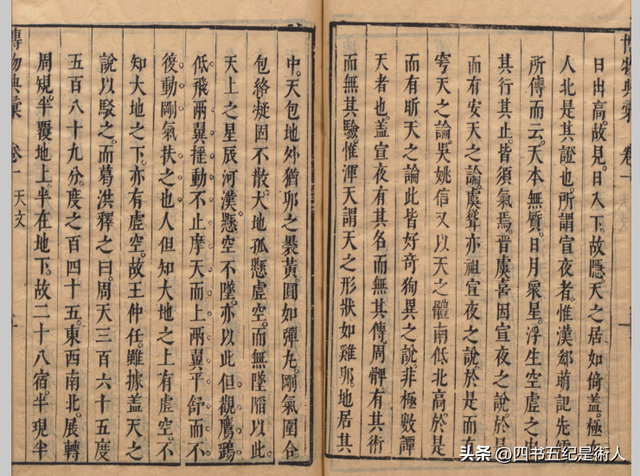 日出高故見。日入下故隱。天之居如倚蓋。極在
人北是其證也。所謂宣夜者。惟漢郄萌記先
所傳而云。天本無質。日月衆星。浮生空虛之
其行其止。皆須氣焉。晉虞喜因宣夜之說。於是
而有安天之論。虞聳亦祖宣夜之說。於是而有
穹天之論。吳姚信又以天之體南低北高。於是
而有昕天之論。此皆好奇狥異之說。非極數譚
天者也。蓋宣夜有其名。而無其傳。周髀有其術
而無其驗。惟渾天謂天之形狀如雞卵。地居其
中。天包地外。猶卵之裹黃。圓如彈丸。剛氣圍合
包絡凝固不散。大地孤懸虛空。而無墜陷以此
天上之星辰河漢。懸空不墜。亦以此。但觀鷹鷂
低飛兩翼動不止。摩天而上。兩翼平舒而不
復動。剛氣扶之也。人但知大地之上有虛空。不
知大地之下。亦有虛空。故王仲任。雖據蓋天之
說以駁之。而葛洪釋之曰。周天三百六十五度
五百八十九分度之百四十五。東西南北。展轉
周規。半覆地上。半在地下。故二十八宿半現半
博物典彙 卷一 天文
头条 @四书五纪是術人